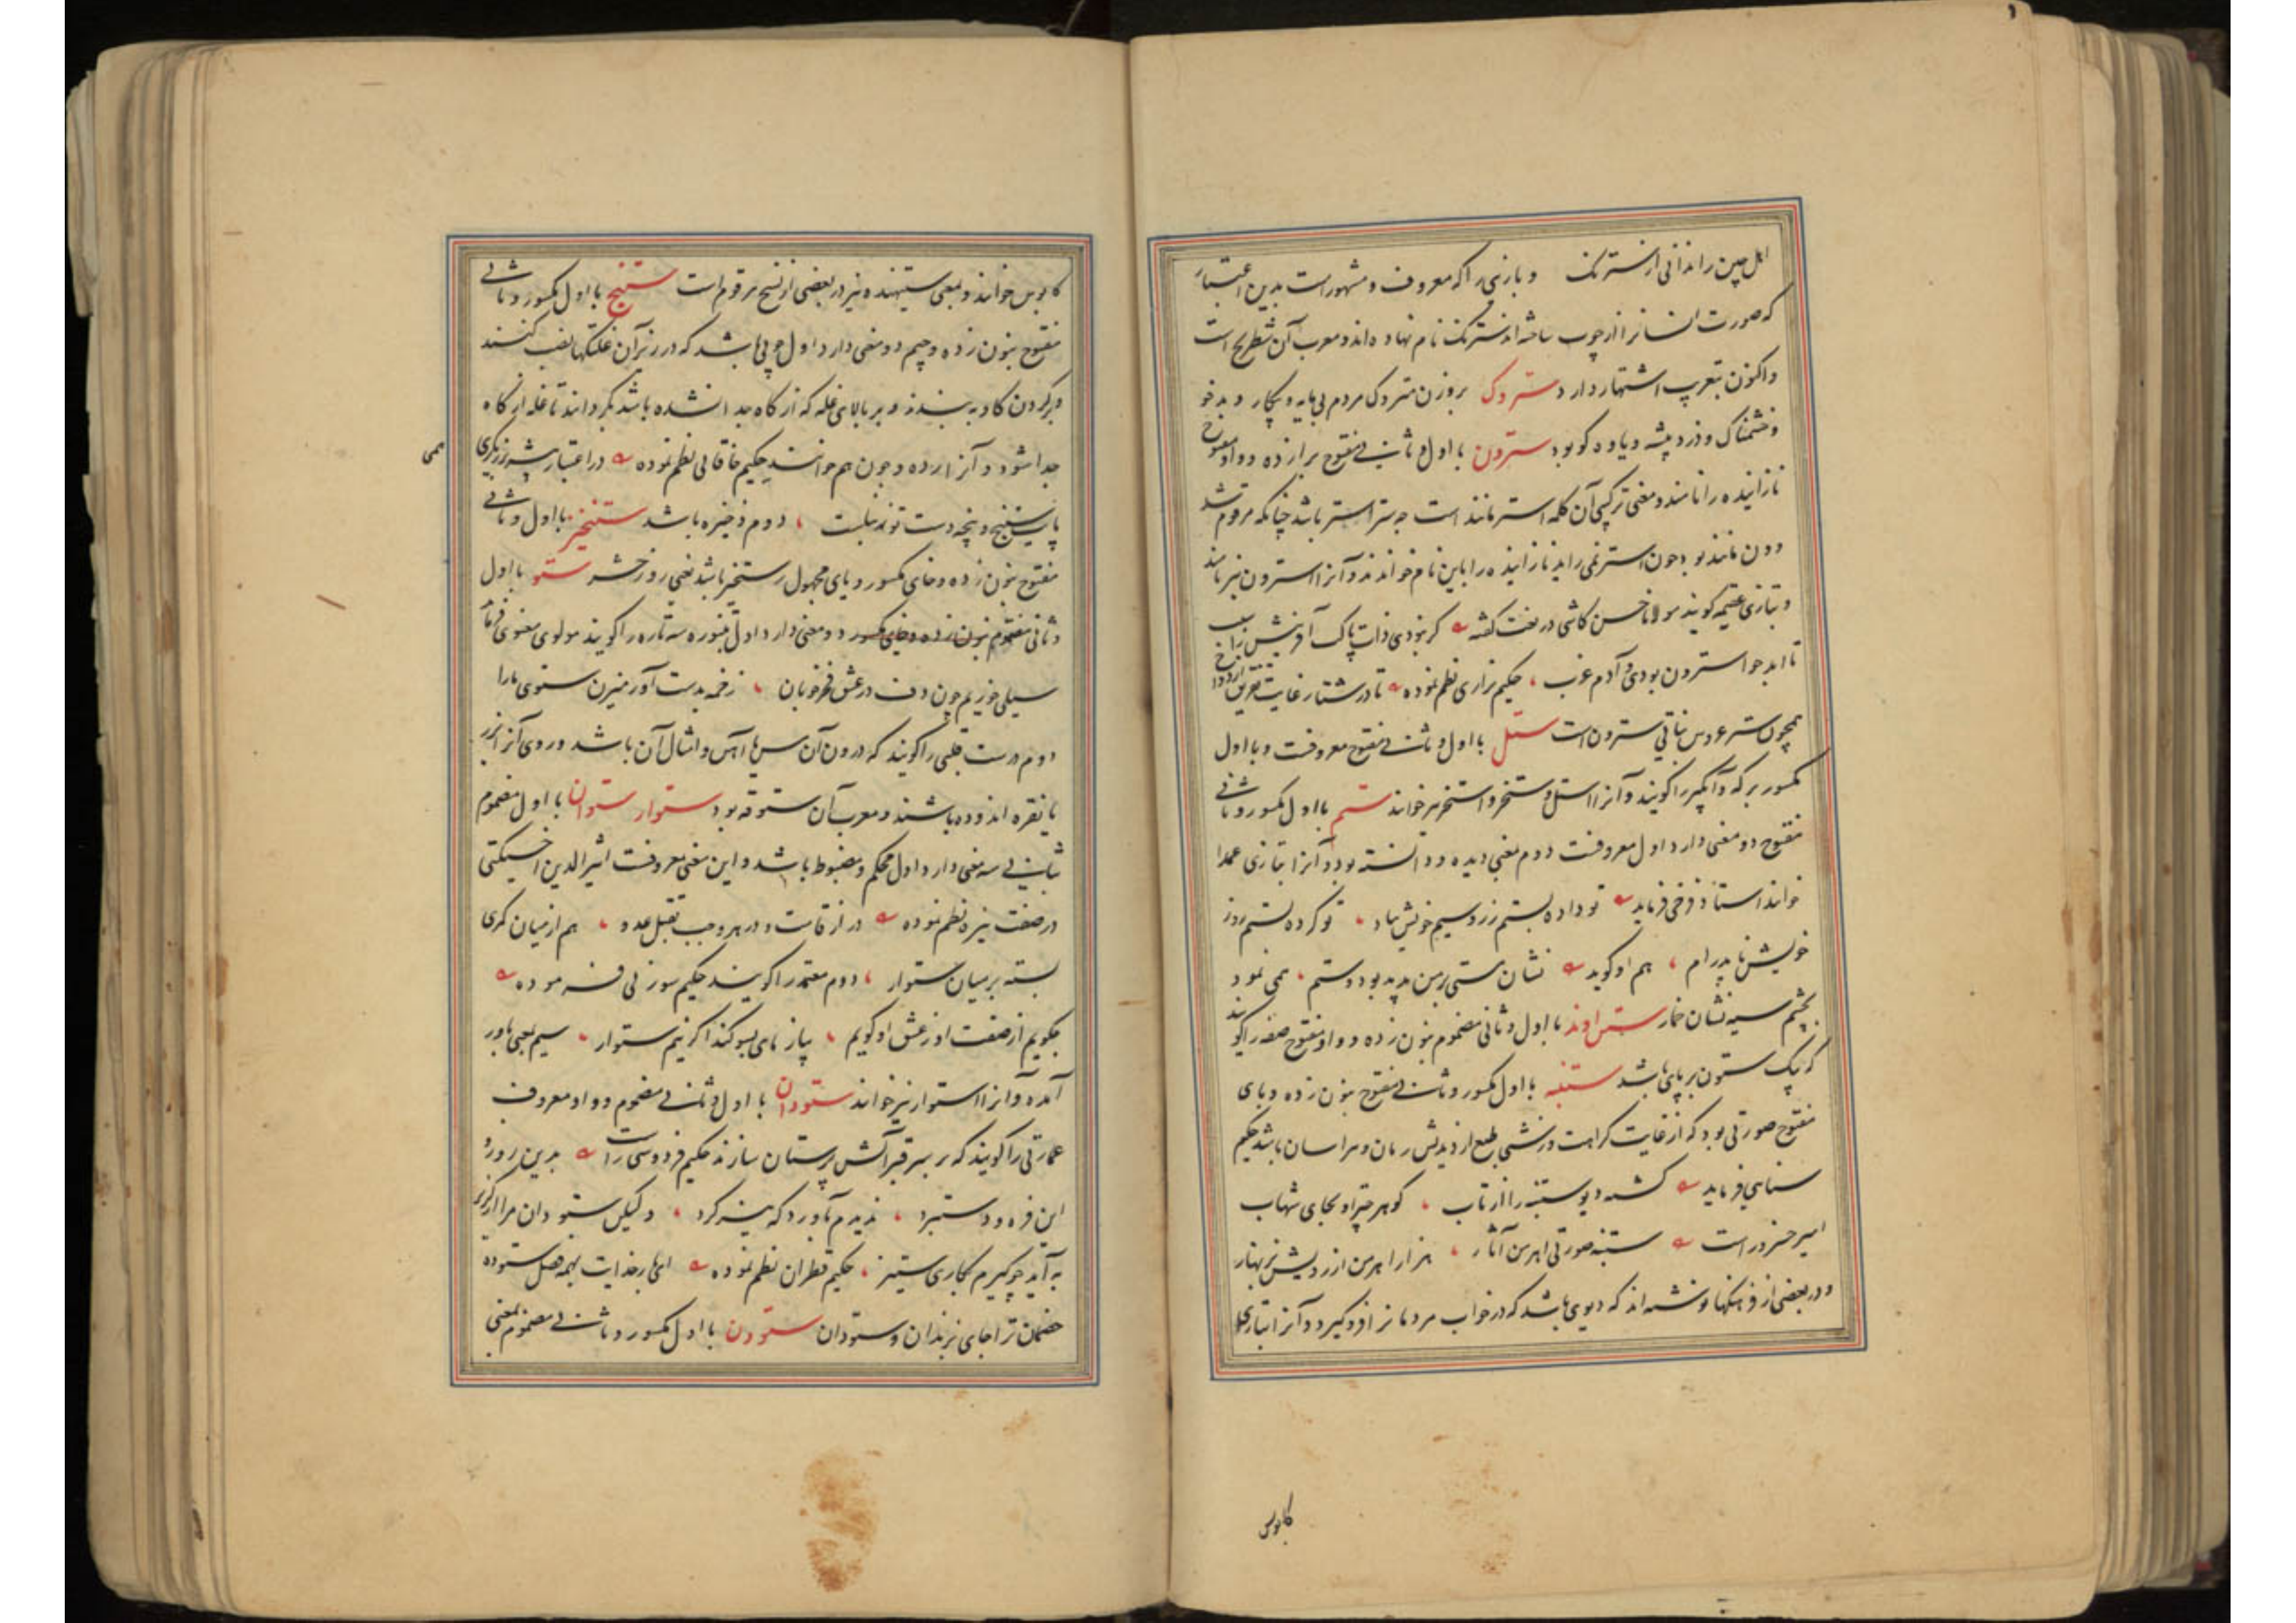 اهل چین را ندانی از سترنک و بازی را که معروف و مشهور است بدین اعتبار
که صورت انسان را از چوب ساخته اند سترنک نام نهاده اند و معرب آن شطرنج است
و اکنون بتعریب اشتهار دارد ستروک بر وزن متروک مردم بی مایه و بیکار و بدخو
و خشمناک و دزد پیشه و یاوه کو بود سترون با اول و ثانی مفتوح برا زده و واو مفتوح
نازاینده را نامند و معنی ترکیبی آن کلمه استر مانند است چه ستر استر باشد چنانکه مرقوم شد
و ون مانند بود چون استر نمی زاید نازاینده را باین نام خوانند و آنرا استرون نیز نامند
و بتازی عقیمه کویند مولانا حسن کاشی در نعت گفته کر نبودی ذات پاک آفرینش را سبب
تا ابد حوا سترون بودی و آدم عزب حکیم نزاری نظم نموده تا در شتا ز غایت
همچون ستر عروس نباتی سترونست ستل با اول و ثانی مفتوح معروفست و با اول
مکسور برکه و آبگیر را کویند و آنرا استل و ستخر و استخر نیز خوانند ستم با اول مکسور و ثانی
مفتوح دو معنی دارد اول معروفست دوم بمعنی دیده و دانسته بود و آنرا بتازی عمدا
خوانند استاد فرخی فرماید تو داده بستم زر و سیم خویش بباد تو کرده بستم روز
خویش نا پدرام هم او کوید نشان مستی بر من پدید بود و ستم همی نمود
بچشم سیه نشان خمار ستن اوند با اول و ثانی مضموم بنون زده و واو مفتوح صفه را کویند
که بیک ستون بر پای باشد ستنبه با اول مکسور و ثانی مفتوح بنون زده و بای
مفتوح صورتی بود که از غایت کراهت و زشتی طبع از دیدنش رمان و هراسان باشد حکیم
سنایی فرماید کشته دیو ستنبه را از تاب کوهر چتر او بجای شهاب
امیر خسرو راست ستنبه صورتی اهرمن آثار هزار اهرمن از رویش بزنهار
و در بعضی از فرهنکها نوشته اند که دیوی باشد که در خواب مردمانرا فرو گیرد و آنرا بتازی
کابوس
کابوس خوانند و بمعنی ستیهنده نیز در بعضی از نسخ مرقوم است ستنج با اول مکسور و ثانی
مفتوح بنون زده و جیم دو معنی دارد اول چوبی باشد که در زیر آن غلتکها نصب کنند
و بر کردن کاو به بندند و بر بالای غله که از کاه جدا نشده باشد بگردانند تا غله از کاه
جدا شود و آنرا رده و چون هم خوانند حکیم خاقانی نظم نموده در اعتبار پیشه برزیکری
همی
پای ستنج و پنجه دست تو نیست دوم ذخیره باشد ستنخیز با اول و ثانی
مفتوح بنون زده و خای مکسور و یای مجهول رستخیز باشد یعنی روز حشر ستو با اول
و ثانی مضموم بنون زده و خای مکسور دو معنی دارد اول طنبوره سه تاره را کویند مولوی معنوی فرماید
سیلی خوریم چون دف در عشق فخرجویان زخمه بدست آور میزن سه توی مارا
دوم درست قلبی را کویند که درون آن مس یا آهن و امثال آن باشد و روی آنرا بزر
یا نقره اندوده باشند و معرب آن ستوقه بود ستوار ستوان با اول مضموم
بثانی سه معنی دارد اول محکم و مضبوط باشد و این معنی معروفست اثیر الدین اخسیکتی
در صفت نیزه نظم نموده دراز قامت و در هر وجب بقتل عدو هم از میان کمری
بسته بر میان ستوار دوم معتمد را کویند حکیم سوزنی فرموده
چگویم از صفت او ز عشق او گویم بیاز مای بسوکند اکر نیم ستوار سیم بمعنی باور
آمده و آنرا استوار نیز خوانند ستودان با اول و ثانی مضموم و واو معروف
عمارتی را کویند که بر سر قبر آتش پرستان سازند حکیم فردوسی راست بدین زور و
این فره و دستبرد ندیدم بآورد که نیز کرد ولیکن ستودان مرا از گریز
به آید چو گیرم بکاری ستیز حکیم قطران نظم نموده ای بار خدایت بهمه فضل ستوده
خصمان ترا جای بزندان و ستودان ستودن با اول مکسور و ثانی مضموم بمعنی